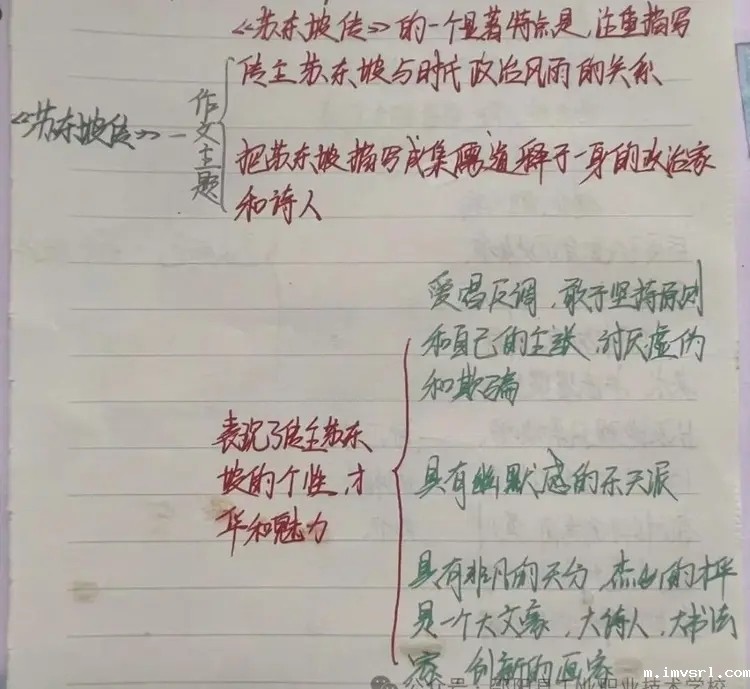 《苏东坡传》的一个显著特点是,注重描写
传主苏东坡与时代政治风雨的关系
《苏东坡传》一
作文主题
把苏东坡描写成集儒道释于一身的政治家
和诗人
爱唱反调,敢于坚持原则
和自己的主张,讨厌虚伪
和欺骗
表现了传主苏东
坡的个性,才
华和魅力
具有幽默感的乐天派
具有非凡的天分,杰出的才
是一个大文豪,大诗人,大书法
家,创新的画家
公众号·邵阳县工业职业技术学校
m.imvsrl.com